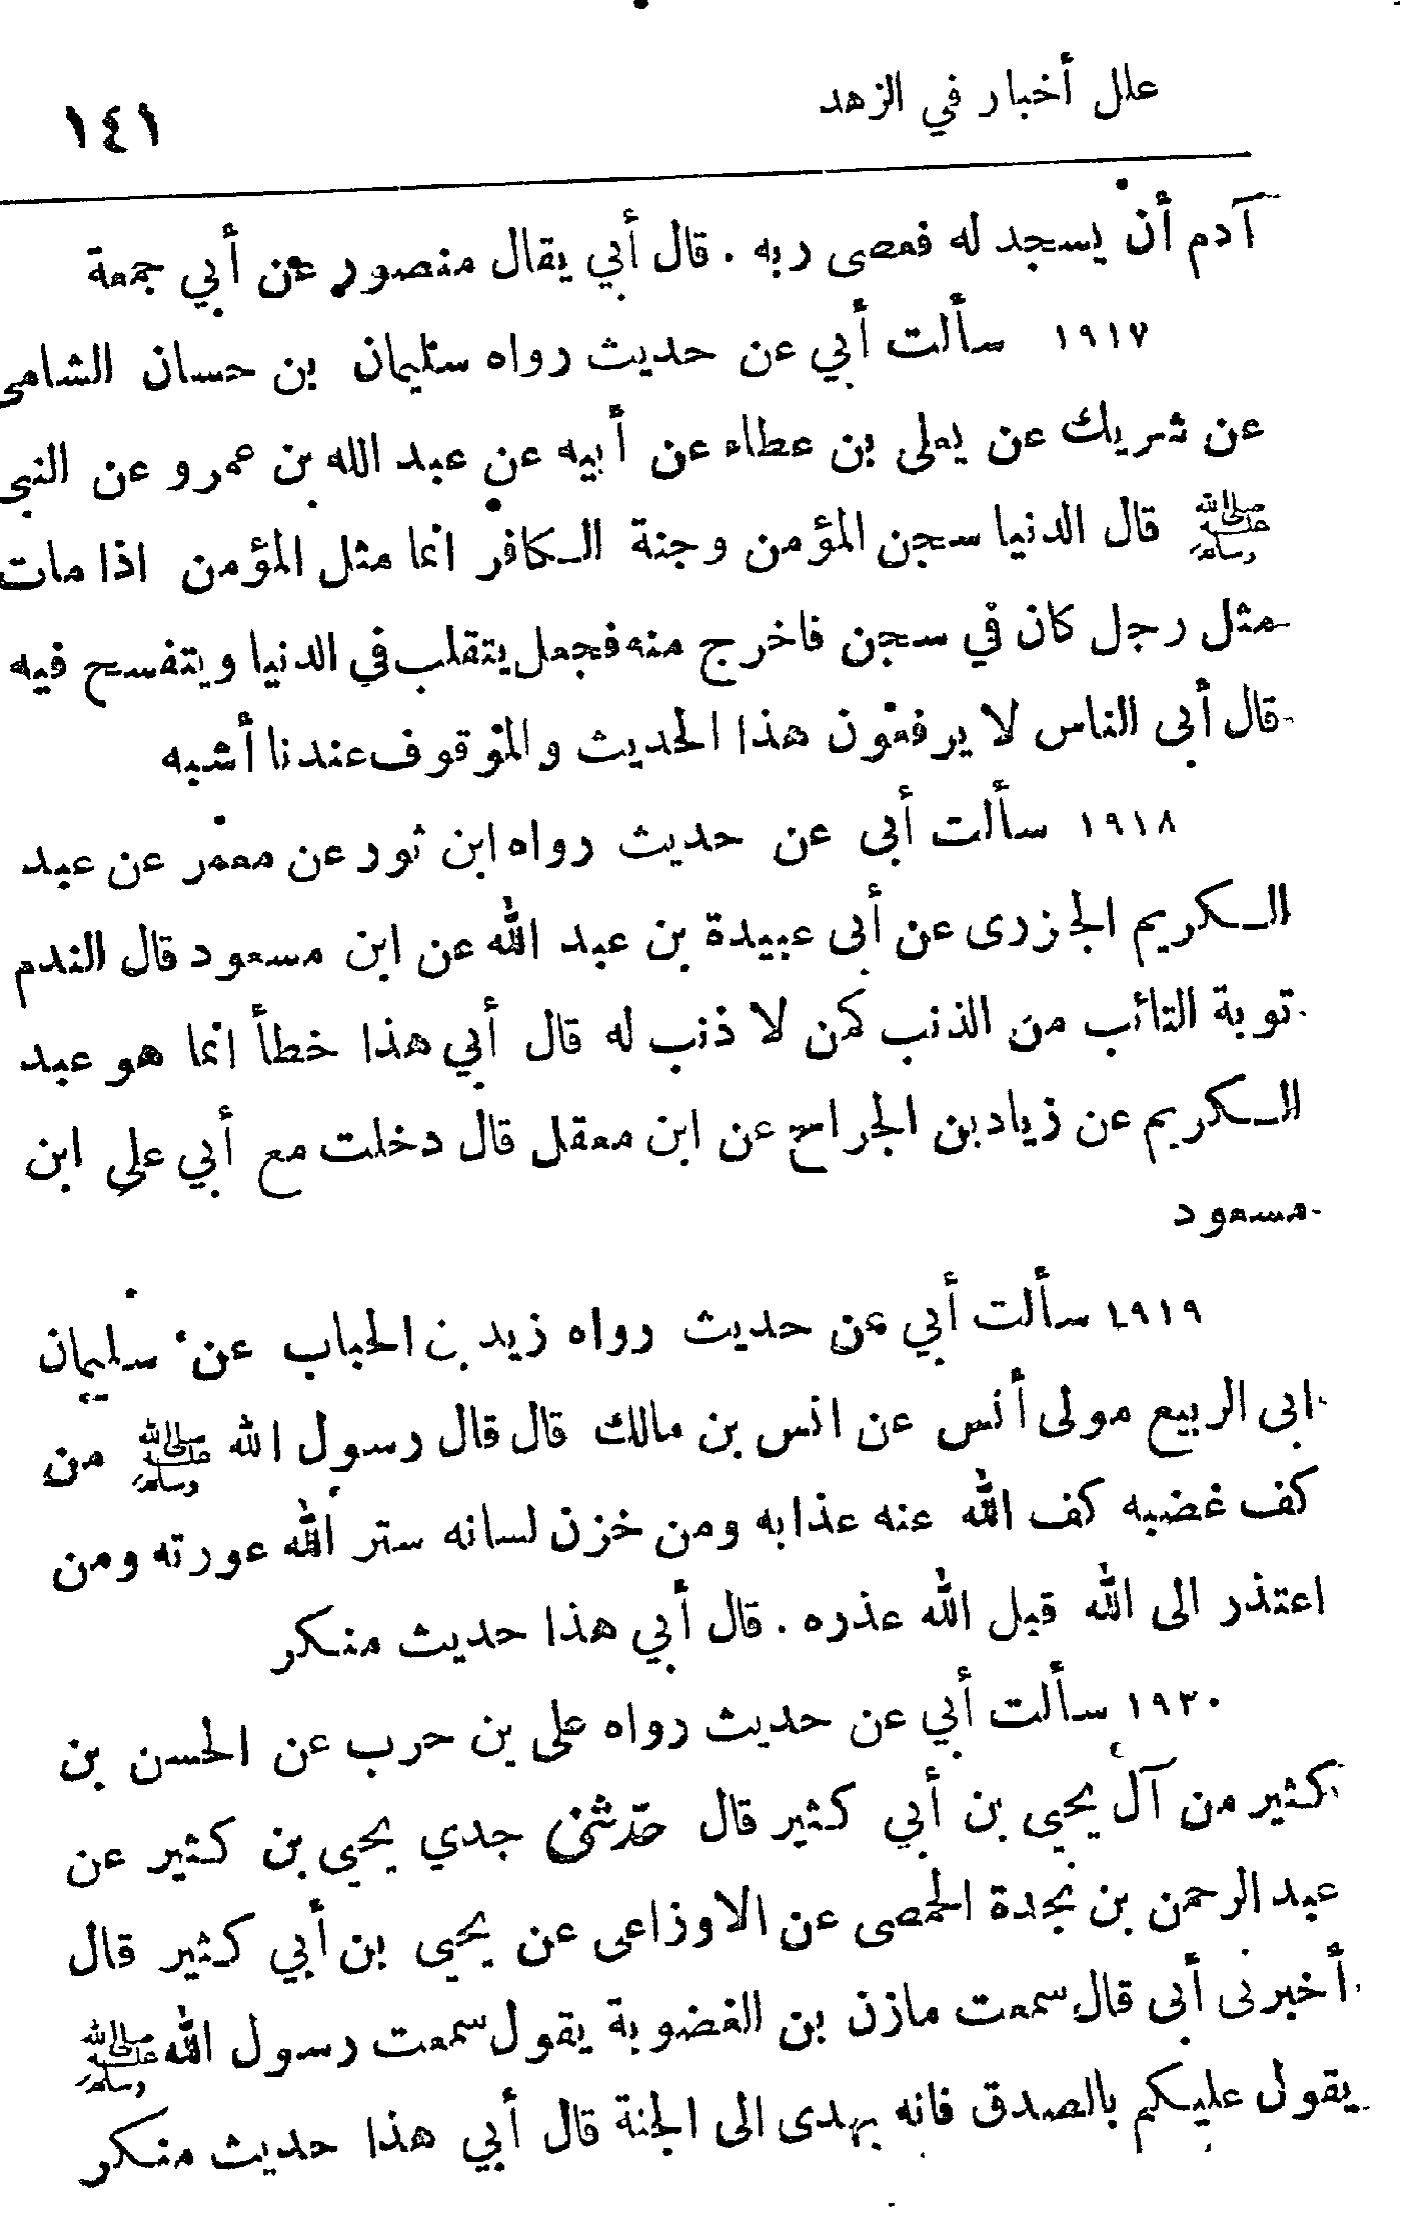 علل أخبار في الزهد
١٤١
آدم أن يسجد له فعصى ربه . قال أبي يقال منصور عن أبي جمعة
١٩١٧ سألت أبي عن حديث رواه سليمان بن حسان الشامى
عن شريك عن يعلى بن عطاء عن أبيه عن عبد الله بن عمرو عن النبى
ﷺ قال الدنيا سجن المؤمن وجنة الكافر انما مثل المؤمن اذا مات
مثل رجل كان في سجن فاخرج منه فجعل يتقلب في الدنيا ويتفسح فيه
قال أبى الناس لا يرفعون هذا الحديث والموقوف عندنا أشبه
١٩١٨ سألت أبى عن حديث رواه ابن ثور عن معمر عن عبد
الكريم الجزرى عن أبى عبيدة بن عبد الله عن ابن مسعود قال الندم
توبة التائب من الذنب كمن لا ذنب له قال أبي هذا خطأ انما هو عبد
الكريم عن زياد بن الجراح عن ابن معقل قال دخلت مع أبي على ابن
مسعود
١٩١٩ سألت أبي عن حديث رواه زيد بن الحباب عن سليمان
ابى الربيع مولى أنس عن انس بن مالك قال قال رسول الله ﷺ من
كف غضبه كف الله عنه عذابه ومن خزن لسانه ستر الله عورته ومن
اعتذر الى الله قبل الله عذره . قال أبي هذا حديث منكر
١٩٢٠ سألت أبي عن حديث رواه على بن حرب عن الحسن بن
كثير من آل يحيى بن أبي كثير قال حدّثنى جدي يحيى بن كثير عن
عبد الرحمن بن نجدة الحمصى عن الاوزاعى عن يحيى بن أبي كثير قال
أخبرنى أبى قال سمعت مازن بن الغضوبة يقول سمعت رسول الله ﷺ
يقول عليكم بالصدق فانه يهدى الى الجنة قال أبي هذا حديث منكر